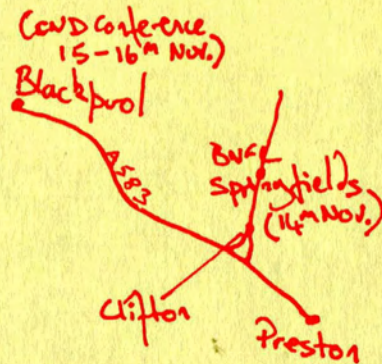 (CND Conference
15-16th Nov.)
Blackpool
A583
BNFL
Springfields
(14th Nov.)
Clifton
Preston